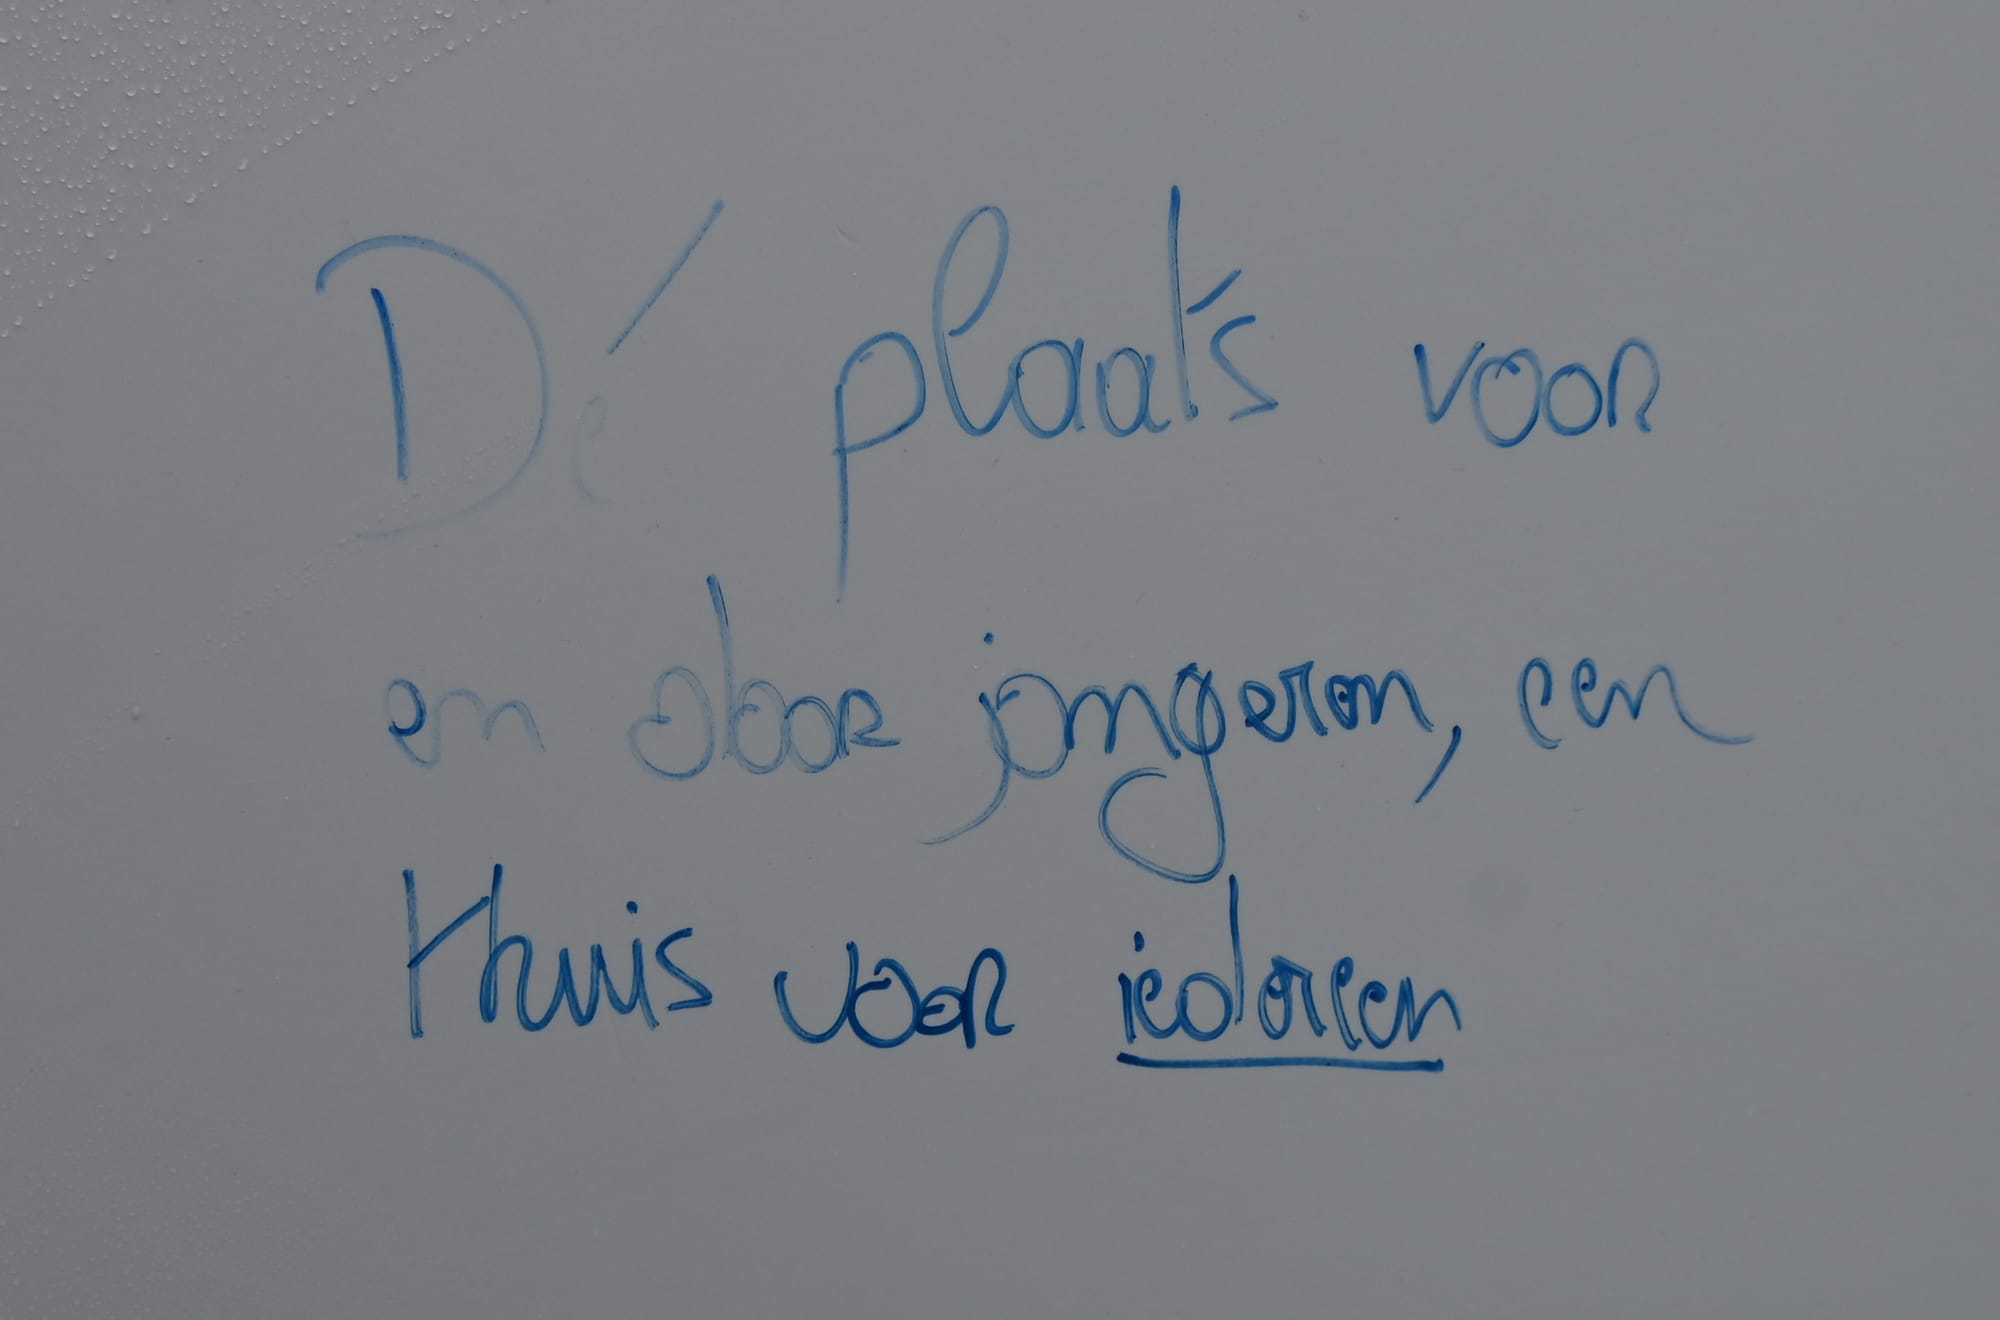 Dé plaats voor
en door jongeren, een
thuis voor iedereen